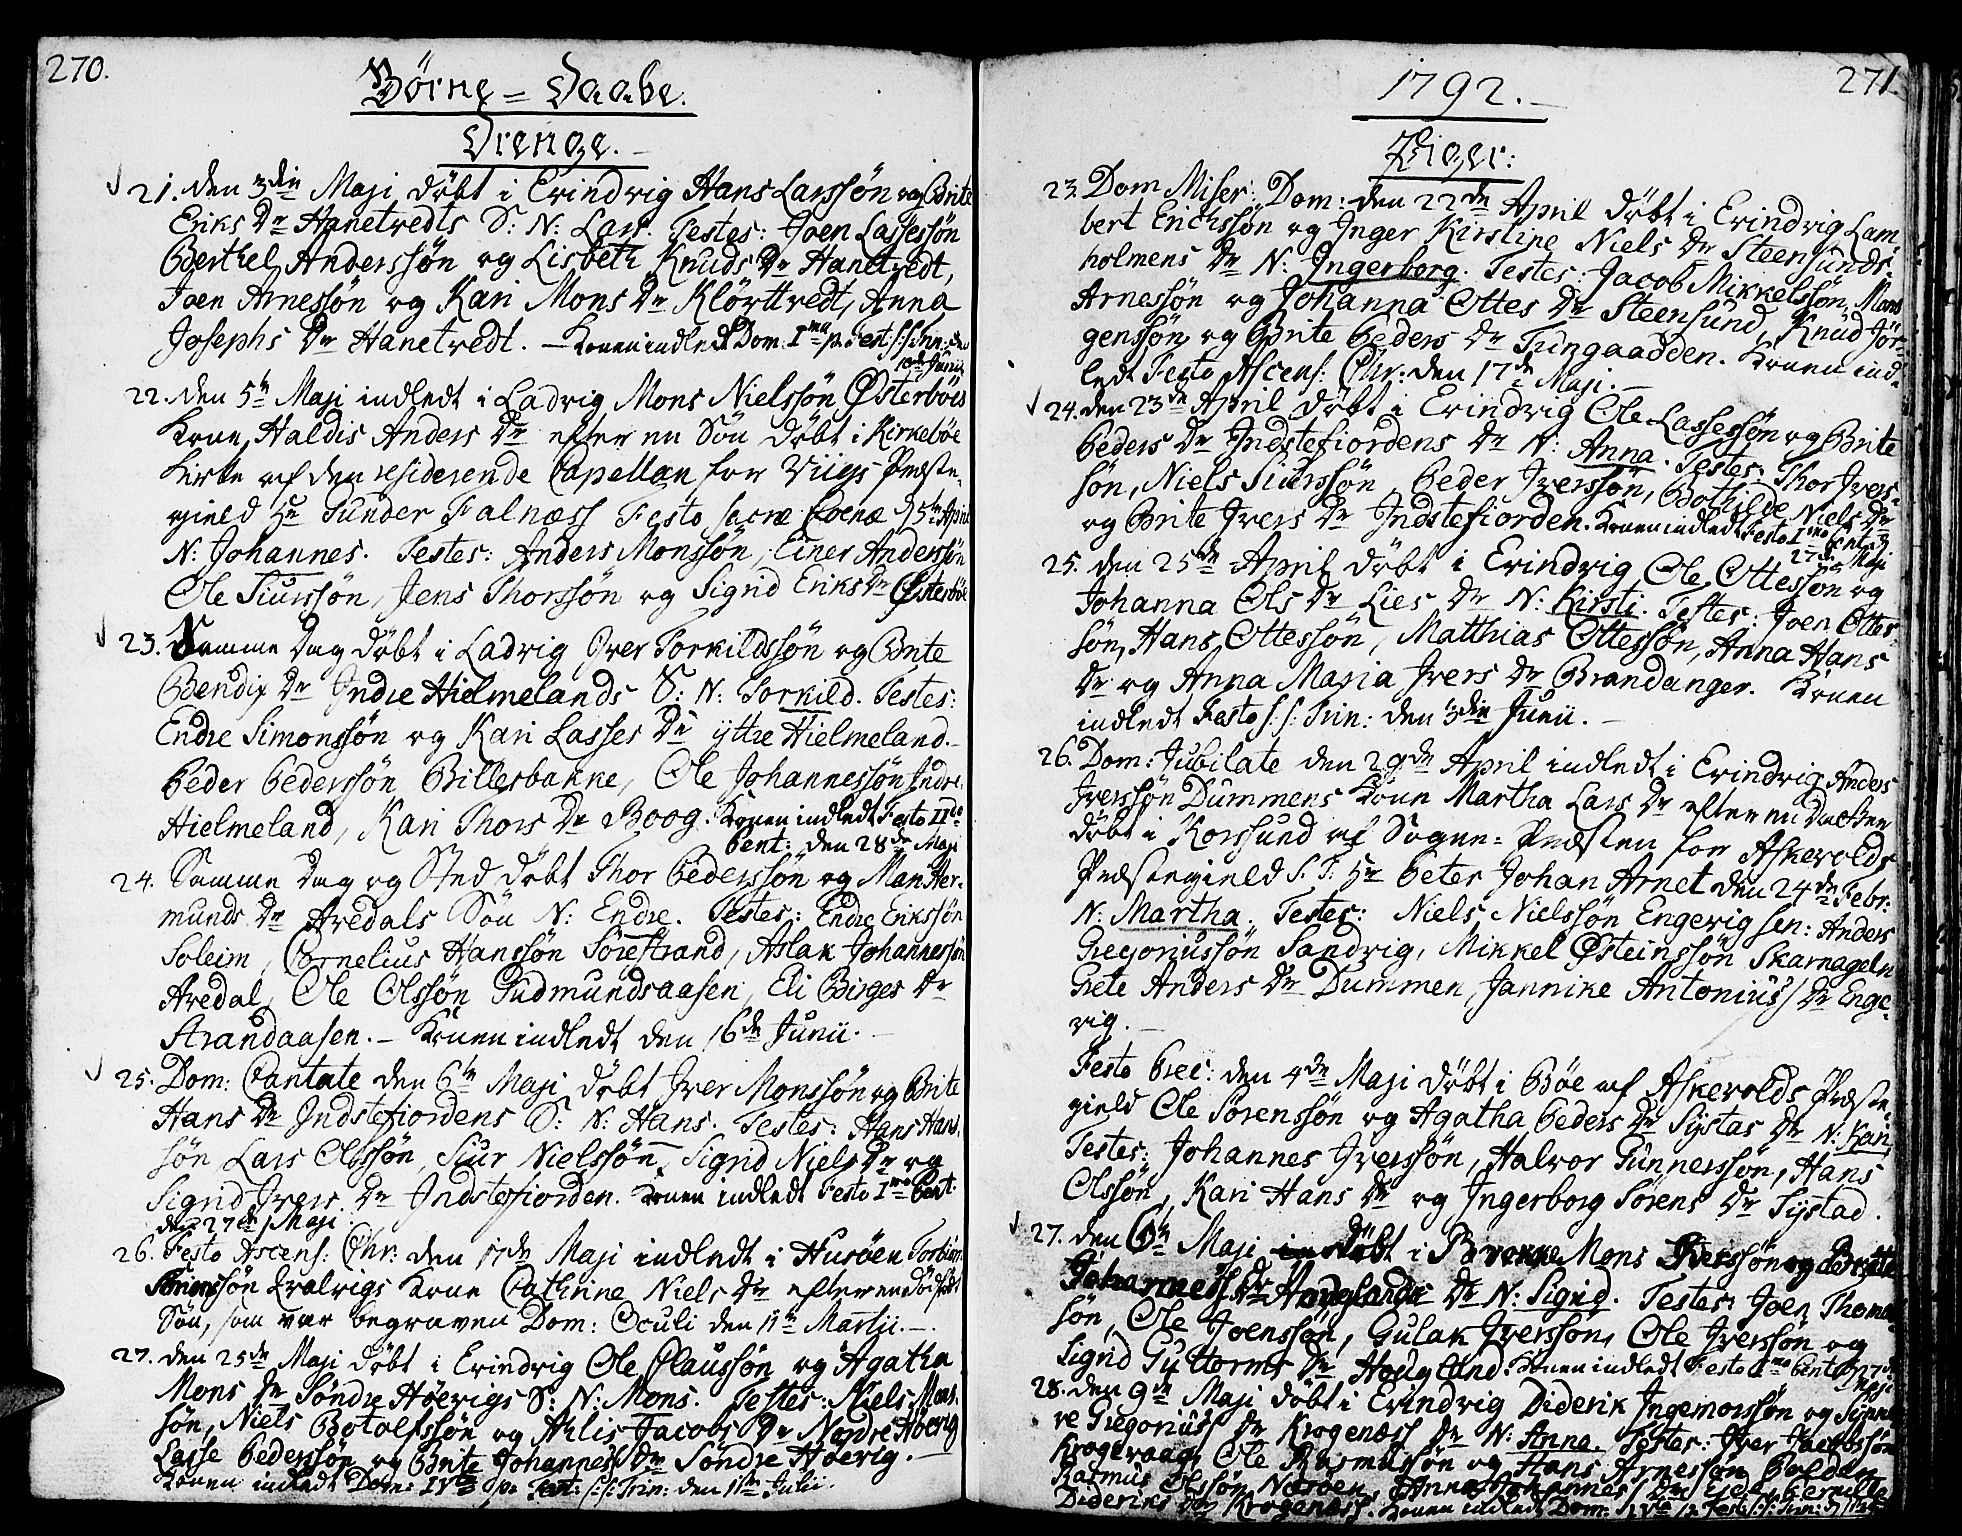 270.
Børne-Daabe.
Drenge.
21. den 3die Maji døbt i Eivindvig Hans Larssøn og Brite
Eriks Dr Hanetvedts S: N: Lars. Testes: Joen Lassessøn
Berthel Anderssøn og Lisbeth Knuds Dr Hanetvedt,
Joen Arnessøn og Kari Mons Dr Klørttvedt, Anna
Josephs Dr Hanetvedt. - Konen indledt Dom: 1ma p. Fest: S:S: Trin: den
10de Junii
22. den 5te Maji indledt i Ladvig Mons Nielssøn Østerbøes
Kone Haldis Anders Dr efter en Søn døbt i Kirkebøe
Kirke af den residerende Capellan for Viigs Præste-
gield Hr Gunder Falnæss Festo sacræ Coenæ d 5te April
N: Johannes. Testes: Anders Monssøn, Einer Anderssøn
Ole Siurssøn, Jens Thorssøn og Sigrid Eriks Dr Østerbøe
23. Samme Dag døbt i Ladvig Iver Torkildssøn og Brite
Bendix Dr Indre Hielmelands S: N: Torkild. Testes:
Endre Simonssøn og Kari Lasses Dr yttre Hielmeland.
Peder Pederssøn Billesbakke, Ole Johannessøn Indre
Hielmeland, Kari Thors Dr Boog. Konen indledt Festo IIdo
Pent: den 28de Maji
24. Samme Dag og Sted døbt Thor Pederssøn og Mari Her-
munds Dr Aredals Søn N: Endre. Testes: Endre Erikssøn
Soleim, Cornelius Hanssøn Sørestrand, Aslak Johannessøn
Aredal, Ole Olssøn Gudmundsaasen, Eli Birges Dr
Strandaasen. - Konen indledt den 16de Junii.
25. Dom: Cantate den 6te Maji døbt Iver Monssøn og Brite
Hans Dr Indstefiordens S: N: Hans. Testes: Hans Hans-
søn Lars Olssøn, Siur Nielssøn, Sigrid Niels Dr og
Sigrid Ivers Dr Indstefiorden. Konen indledt Festo 1mo Pent:
den 27de Maji
26. Festo Ascens: Chr: den 17de Maji indledt i Husøen Torbiørn
Simonssøn Kone Cathrine Niels Dr efter en dødfødt
Søn, som var begraven Dom: Oculi den 11te Martii.
27. den 25de Maji døbt i Eivindvig Ole Olaussøn og Agatha
Mons Dr Søndre Høevigs S: N: Mons. Testes: Niels Mons-
søn, Niels Botolfssøn og Ahlis Jacobs Dr Nordre Høevig
Lasse Pederssøn og Brite Johanness Dr Søndre Høevig.
Konen indledt Dom: IVta p. Fest: S:S: Trin: den 1ste Julii.
1792.
271.
Piger:
23. Dom Miser: Dom: den 22de April døbt i Eivindvig Lam
bert Erichssøn og Inger Kirstine Niels Dr Steensunds-
holmens Dr N: Ingerberg. Testes: Jacob Mikkelssøn, Mons
Arnessøn og Johanna Ottes Dr Steensund, Knud Jør-
genssøn og Brite Peders Dr Tungaadden. Konen ind-
ledt Festo Ascens: Chr: den 17de Maji.
24. den 23de April døbt i Eivindvig Ole Lassessøn og Brite
Peders Dr Indstefiordens Dr N: Anna. Testes: Thor Ivers-
søn, Niels Siurssøn, Peder Iverssøn, Bothilde Niels Dr
og Brite Ivers Dr Indstefiorden. Konen indledt Festo 1mo Pent: d
27de Maji
25. den 25de April døbt i Eivindvig Ole Ottessøn og
Johanna Ols Dr Lies Dr N: Kirsti. Testes: Joen Ottes-
søn, Hans Ottessøn, Matthias Ottessøn, Anna Hans
Dr og Anna Maria Ivers Dr Brandanger. Konen
indledt Festo S:S: Trin: den 3die Junii.
26. Dom: Jubilate den 29de April indledt i Eivindvig Anders
Iverssøn Dummens Kone Martha Lars Dr efter en Datter
døbt i Korssund af Sogne-Præsten for Askevolds
Præstegield S.T. Hr Peter Johan Arnet den 24de Febr:
N: Martha. Testes: Niels Nielssøn Engevig sen: Anders
Gregoriussøn Sandvig, Mikkel Østeinssøn Skarnageln
Grete Anders Dr Dummen, Jannike Antonius Dr Enge-
vig.
Festo Prec: den 4de Maji døbt i Bøe af Askevolds Præste-
gield Ole Sørenssøn og Agatha Peders Dr Systas Dr N: Kari
Testes: Johannes Iverssøn, Halvor Gunnerssøn, Hans
Olssøn, Kari Hans Dr og Ingerborg Sørens Dr Systad.
27. den 6te Maji døbt i Brekke Mons Iverssøn og Berete
Johanness Dr Hougelands Dr N: Sigrid. Testes: Joen Thomas
søn, Ole Joenssøn, Gulak Iverssøn, Ole Iverssøn og
Sigrid Guttorms Dr Hougland. Konen indledt Festo 1mo Pent: d 27de
Maji
28. den 9de Maji døbt i Eivindvig Diderik Ingemorssøn og Synne
ve Gregoriuss Dr Krogenæss Dr N: Anna. Testes: Iver Jacobssøn
Krogevaag, Ole Rasmussøn og Hans Arnessøn
Rasmus Olssøn Nærøen, Anna Johanness Dr Pernille
Dideriks Dr Krogenæss. Konen indledt Dom: